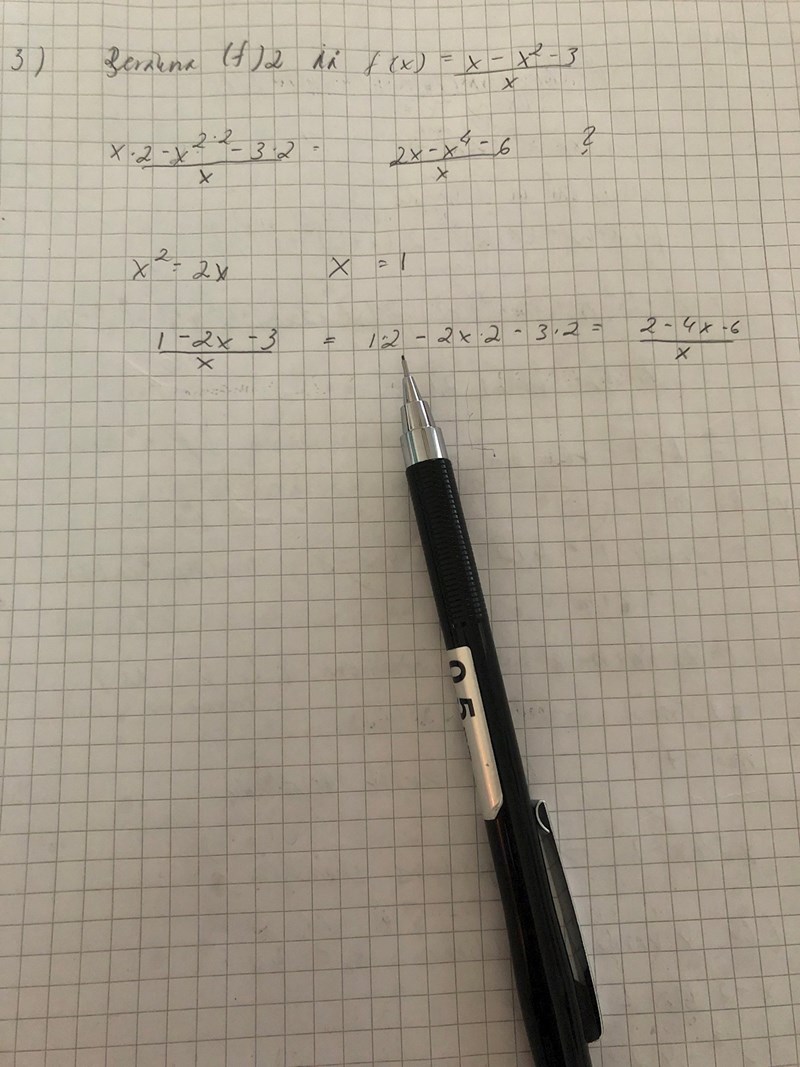 3) (f)2 f(x) = x - x² - 3 / x
x·2 - x²·² - 3·2 / x = 2x - x⁴ - 6 / x ?
x² = 2x x = 1
1 - 2x - 3 / x = 1·2 - 2x·2 - 3·2 = 2 - 4x - 6 / x
0.5